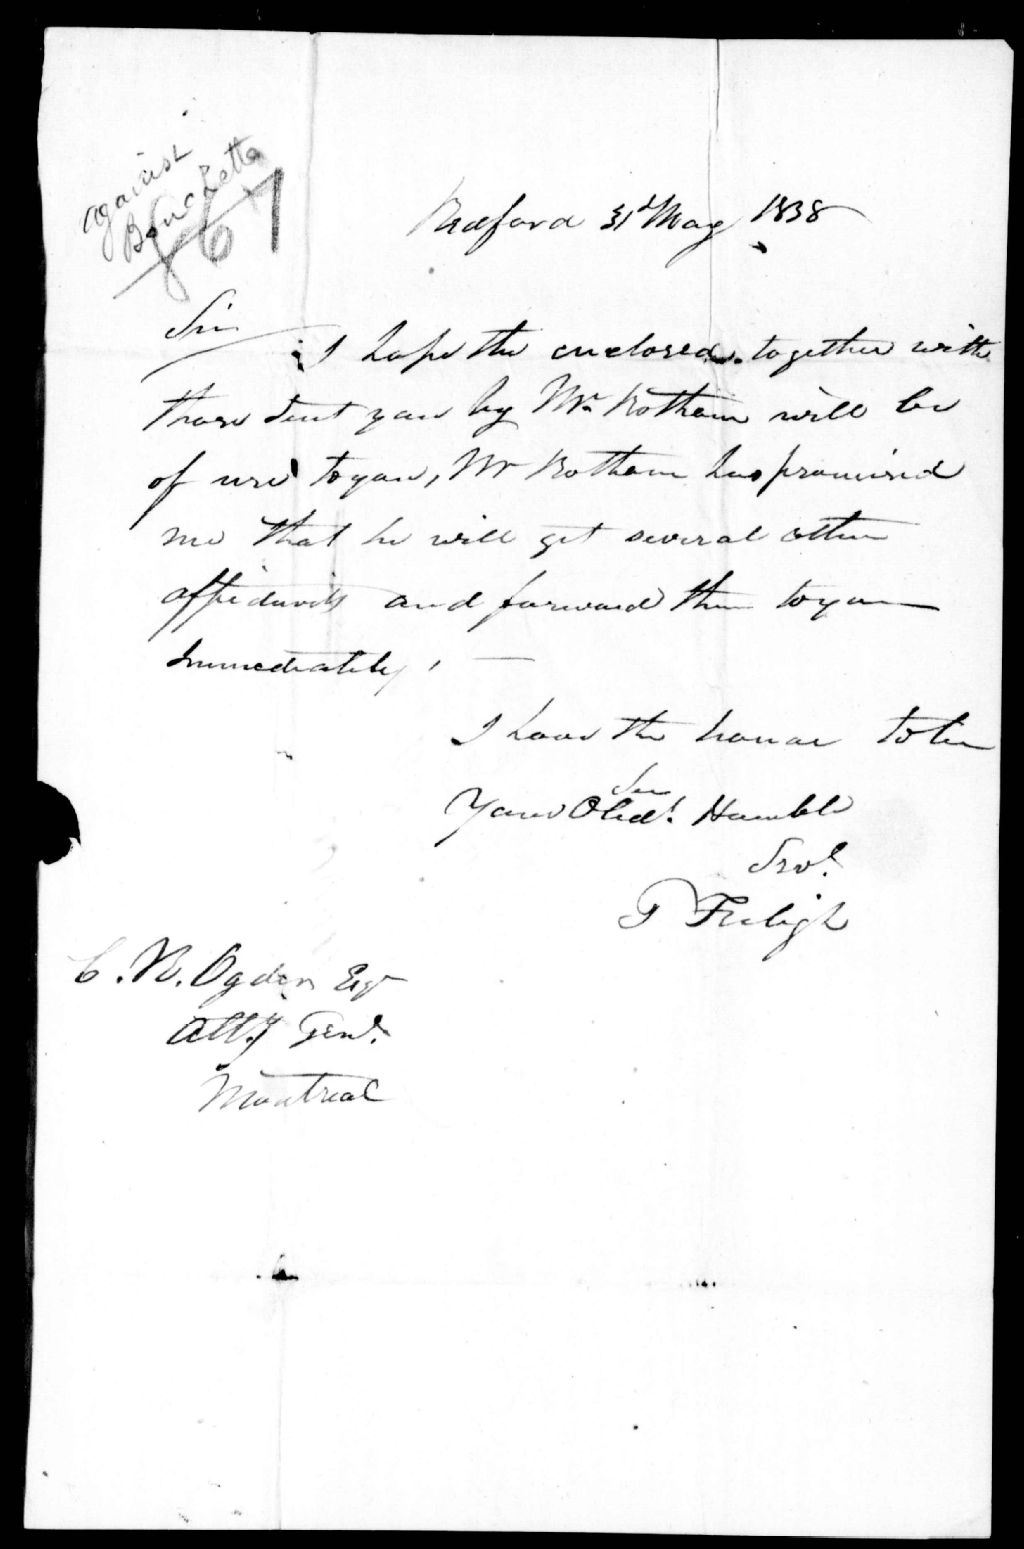 against
Bouchette
867
Bedford 31st May 1838
Sir
I hope the enclosed together with
those sent you by Mr Botham will be
of use to you, Mr Botham has promised
me that he will get several other
affidavits and forward them to you
Immediately,
I have the honor to be
Sir
Your Obedt. Humble
Srvt.
P Freligh
C. R. Ogden Esqr
Atty Genl.
Montreal